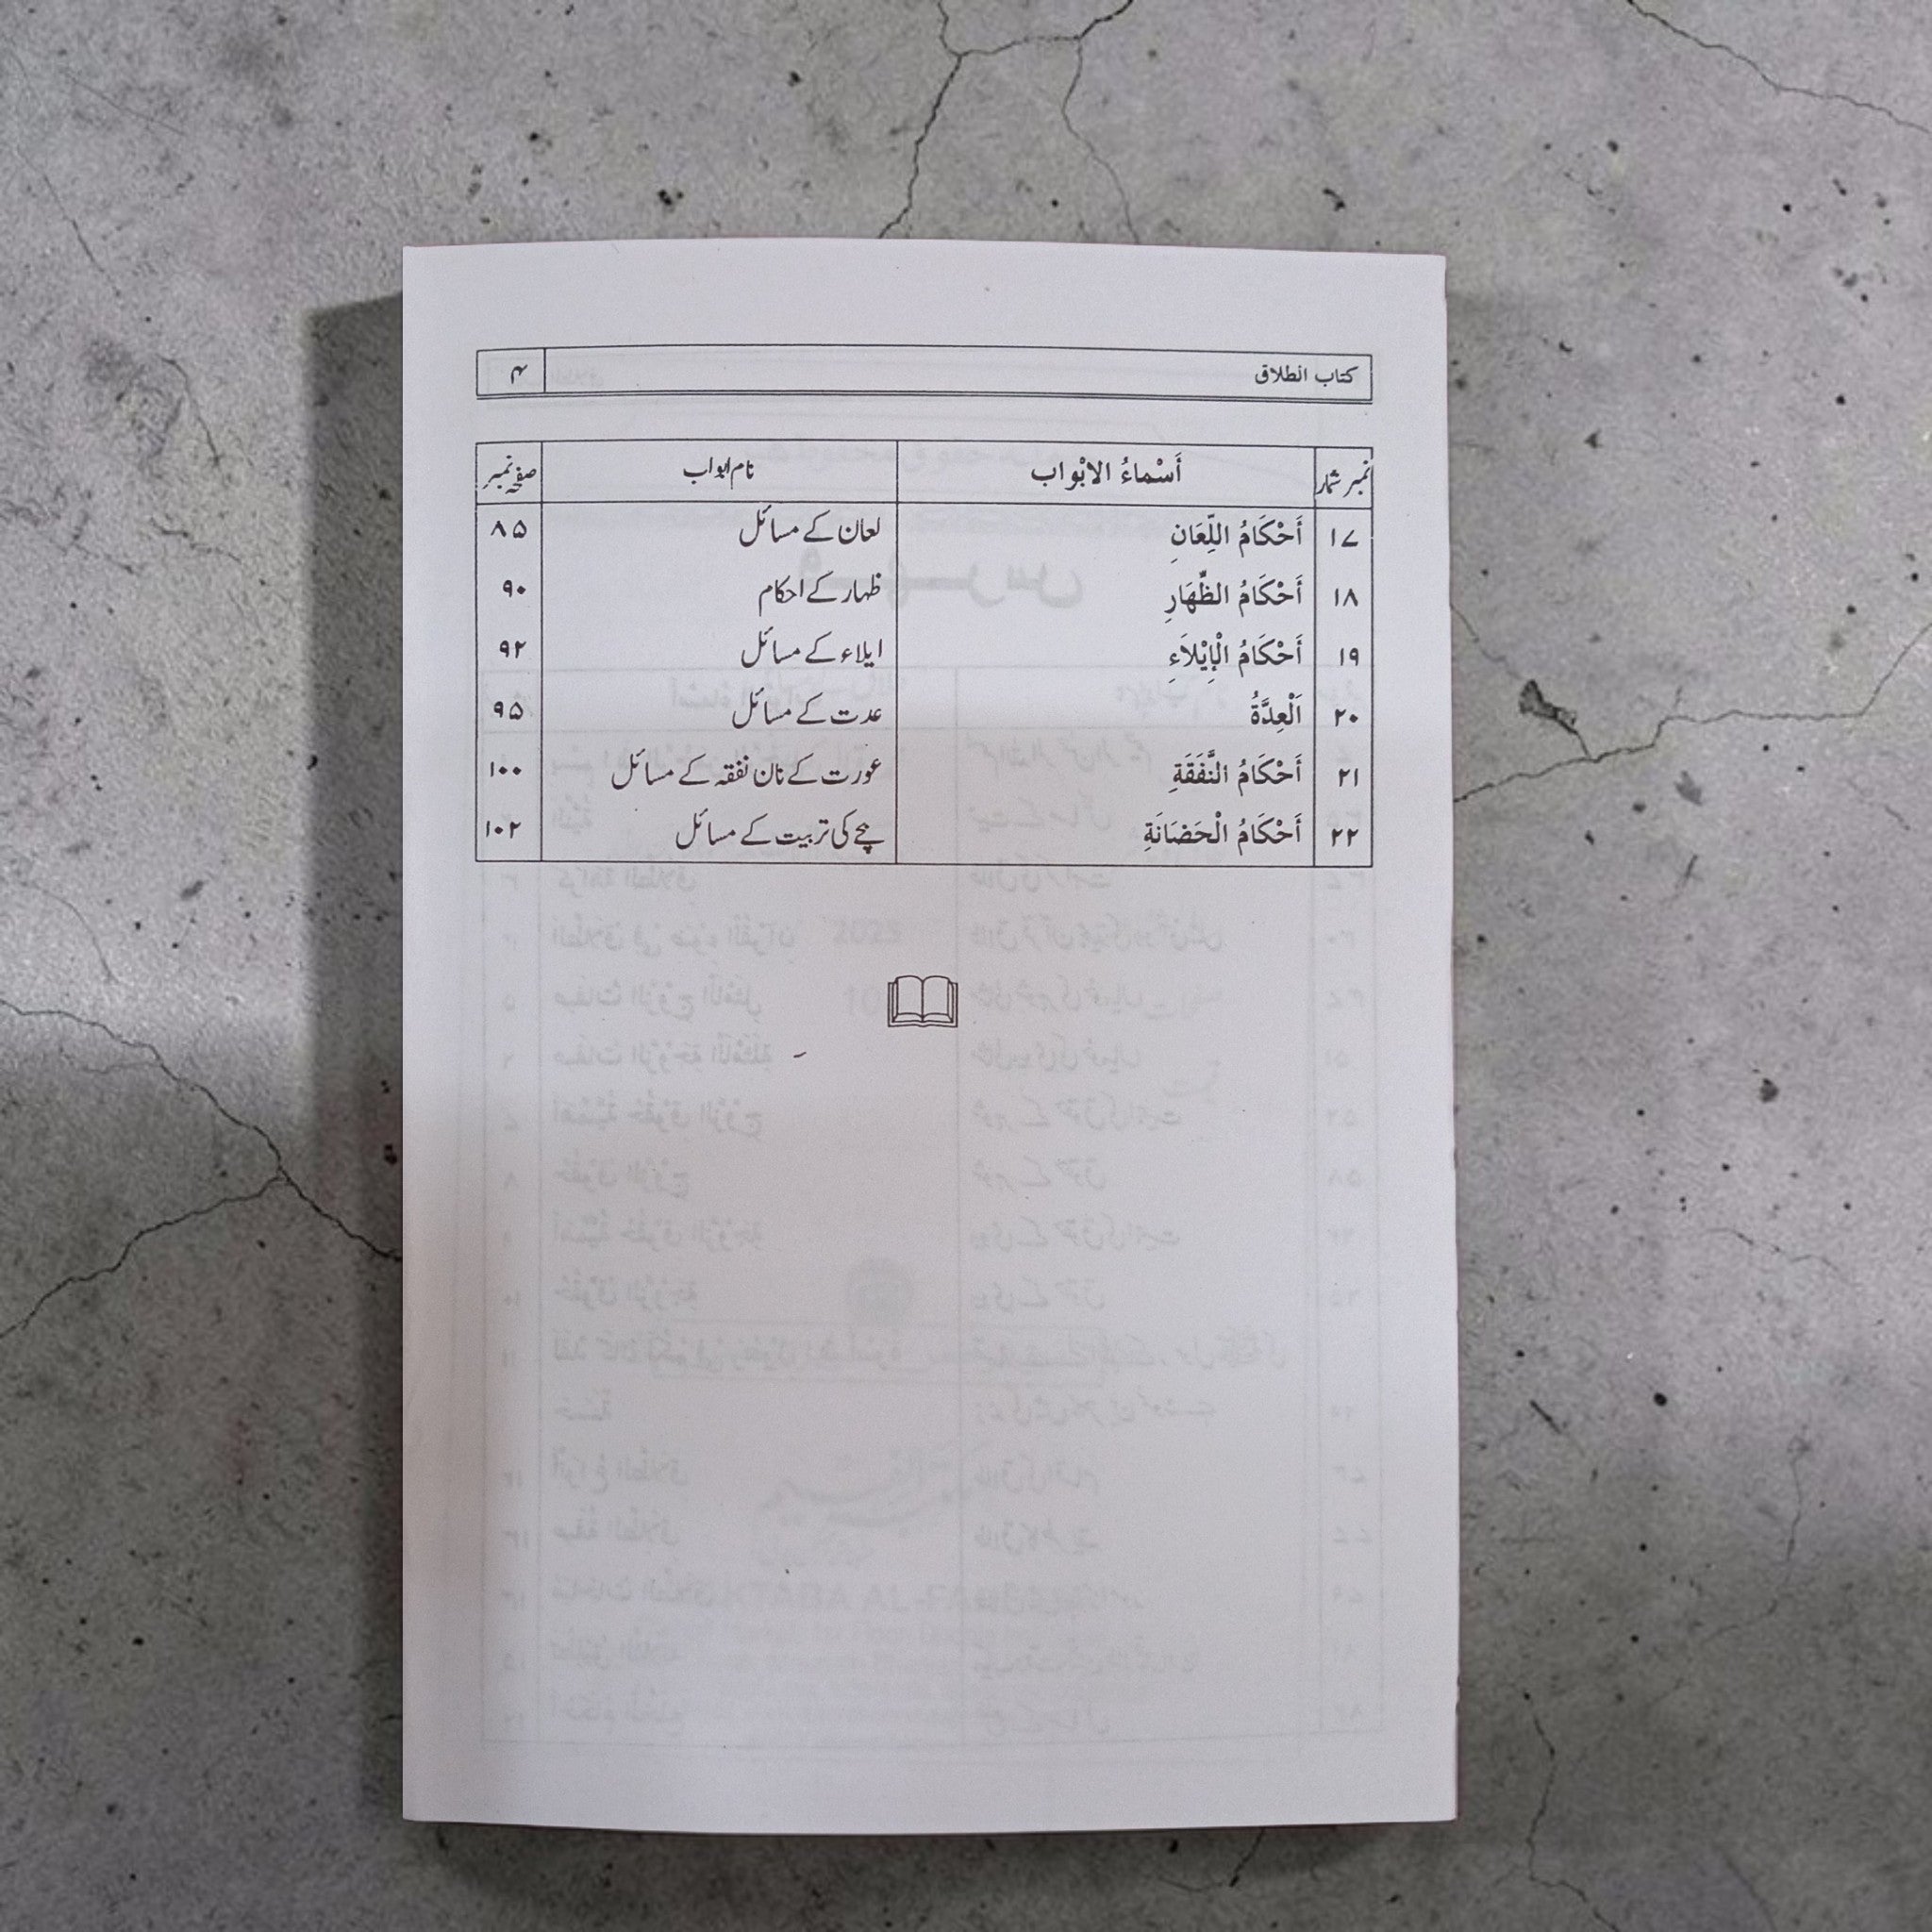 کتاب الطلاق ۴
نمبر شمار أَسْماءُ الابْواب نام ابواب صفحہ نمبر
۱۷ أَحْكَامُ اللِّعَانِ لعان کے مسائل ۸۵
۱۸ أَحْكَامُ الظِّهَارِ ظہار کے احکام ۹۰
۱۹ أَحْكَامُ الْإِيْلَاَءِ ایلاء کے مسائل ۹۲
۲۰ اَلْعِدَّةُ عدت کے مسائل ۹۵
۲۱ أَحْكَامُ النَّفَقَةِ عورت کے نان نفقہ کے مسائل ۱۰۰
۲۲ أَحْكَامُ الْحَضَانَةِ بچے کی تربیت کے مسائل ۱۰۲